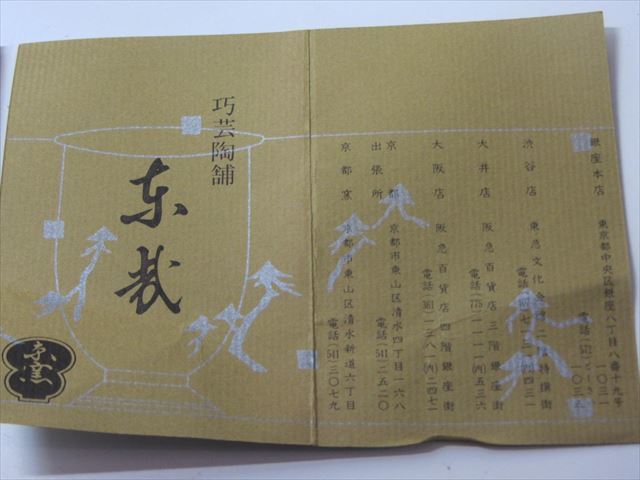 銀座本店 東京都中央区銀座八丁目八番十九号
渋谷店 東急文化会館二階特撰街
大井店 阪急百貨店三階銀座街
電話(775)一一一一(内)五三六
大阪店 阪急百貨店四階銀座街
電話(361)一三八一(内)二四七二
京都出張所 京都市東山区清水四丁目一六八
電話(541)二五二〇
京都窯 京都市東山区清水新道六丁目
電話(541)三〇七九
巧芸陶舗
东哉